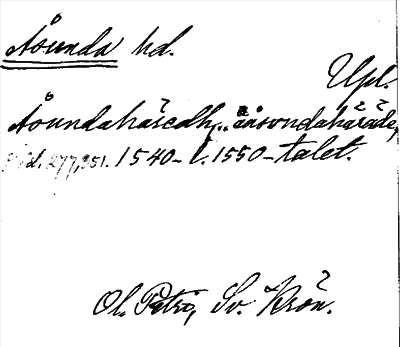 Åsunda hd.
Upl.
Åsundahäredh, ånsvndahäräde,
s. d. 277, 351. 1540- l. 1550-talet.
Ol. Petri, Sv. Krön.